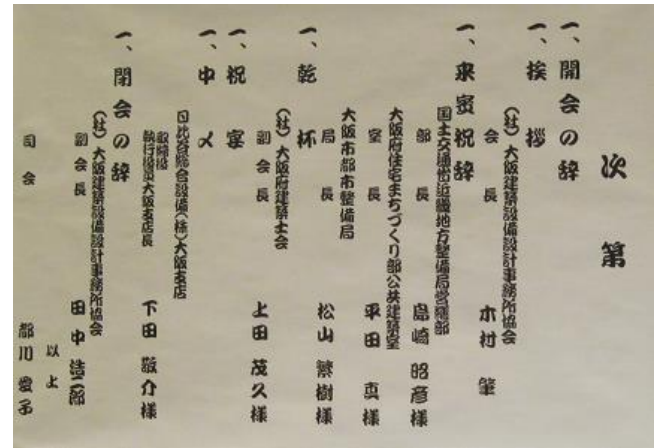 次第
一、開会の辞
一、挨拶
(社)大阪建築設備設計事務所協会
会長 木村
一、来賓祝辞
国土交通省近畿地方整備局営繕部
部長 島崎 昭彦様
大阪府住宅まちづくり部公共建築室
室長 平田 真様
大阪市都市整備局
局長 松山 繁樹様
一、乾杯
(社)大阪府建築士会
副会長 上田 茂久様
一、祝宴
一、中〆
日比谷総合設備(株)大阪支店
取締役
執行役員大阪支店長 下田 敬介様
一、閉会の辞
(社)大阪建築設備設計事務所協会
副会長 田中 浩二郎
以上
司会 都川 愛子